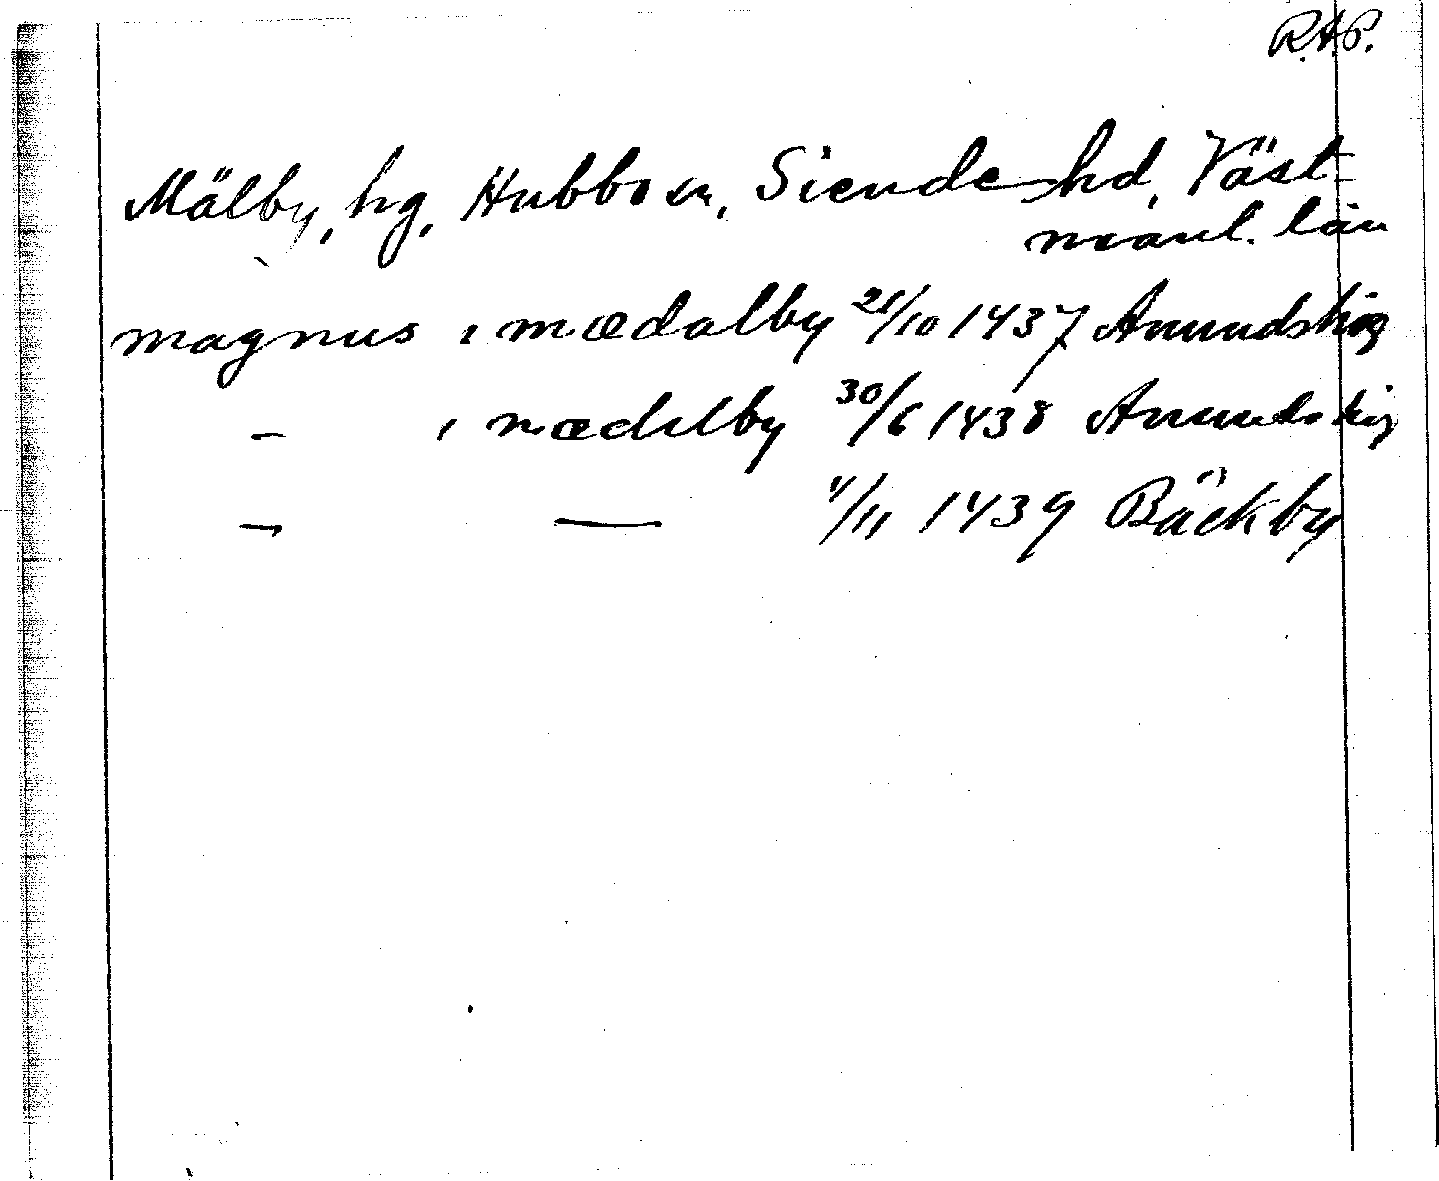 R.A.P.
Mälby, hg, Hubbo sn, Siende hd, Väst-
manl. län
magnus i mædalby 21/10 1437 Anundshög
- i mædelby 30/6 1438 Anundshög
- — 1/11 1439 Bäckby